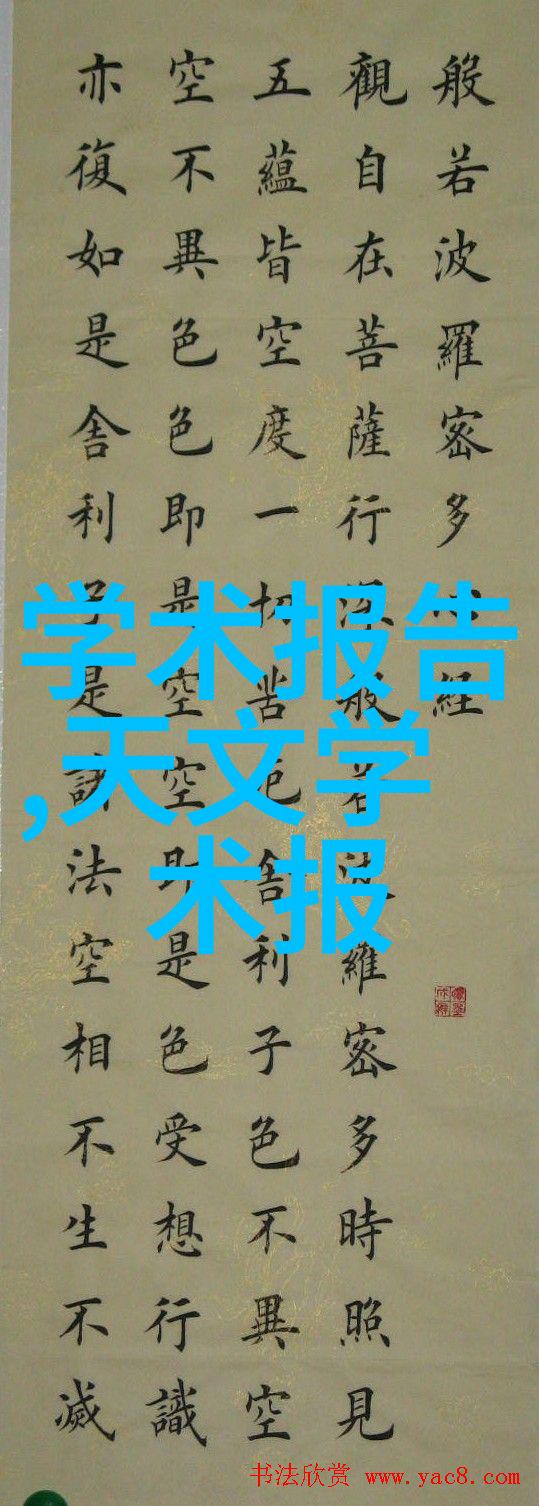 般若波羅密多心經
觀自在菩薩行深般若波羅密多時照見
五蘊皆空度一切苦厄舍利子色不異空
空不異色色即是空空即是色受想行識
亦復如是舍利子是諸法空相不生不滅
学术报告
,天文学
术报
书法欣赏 www.yac8.com